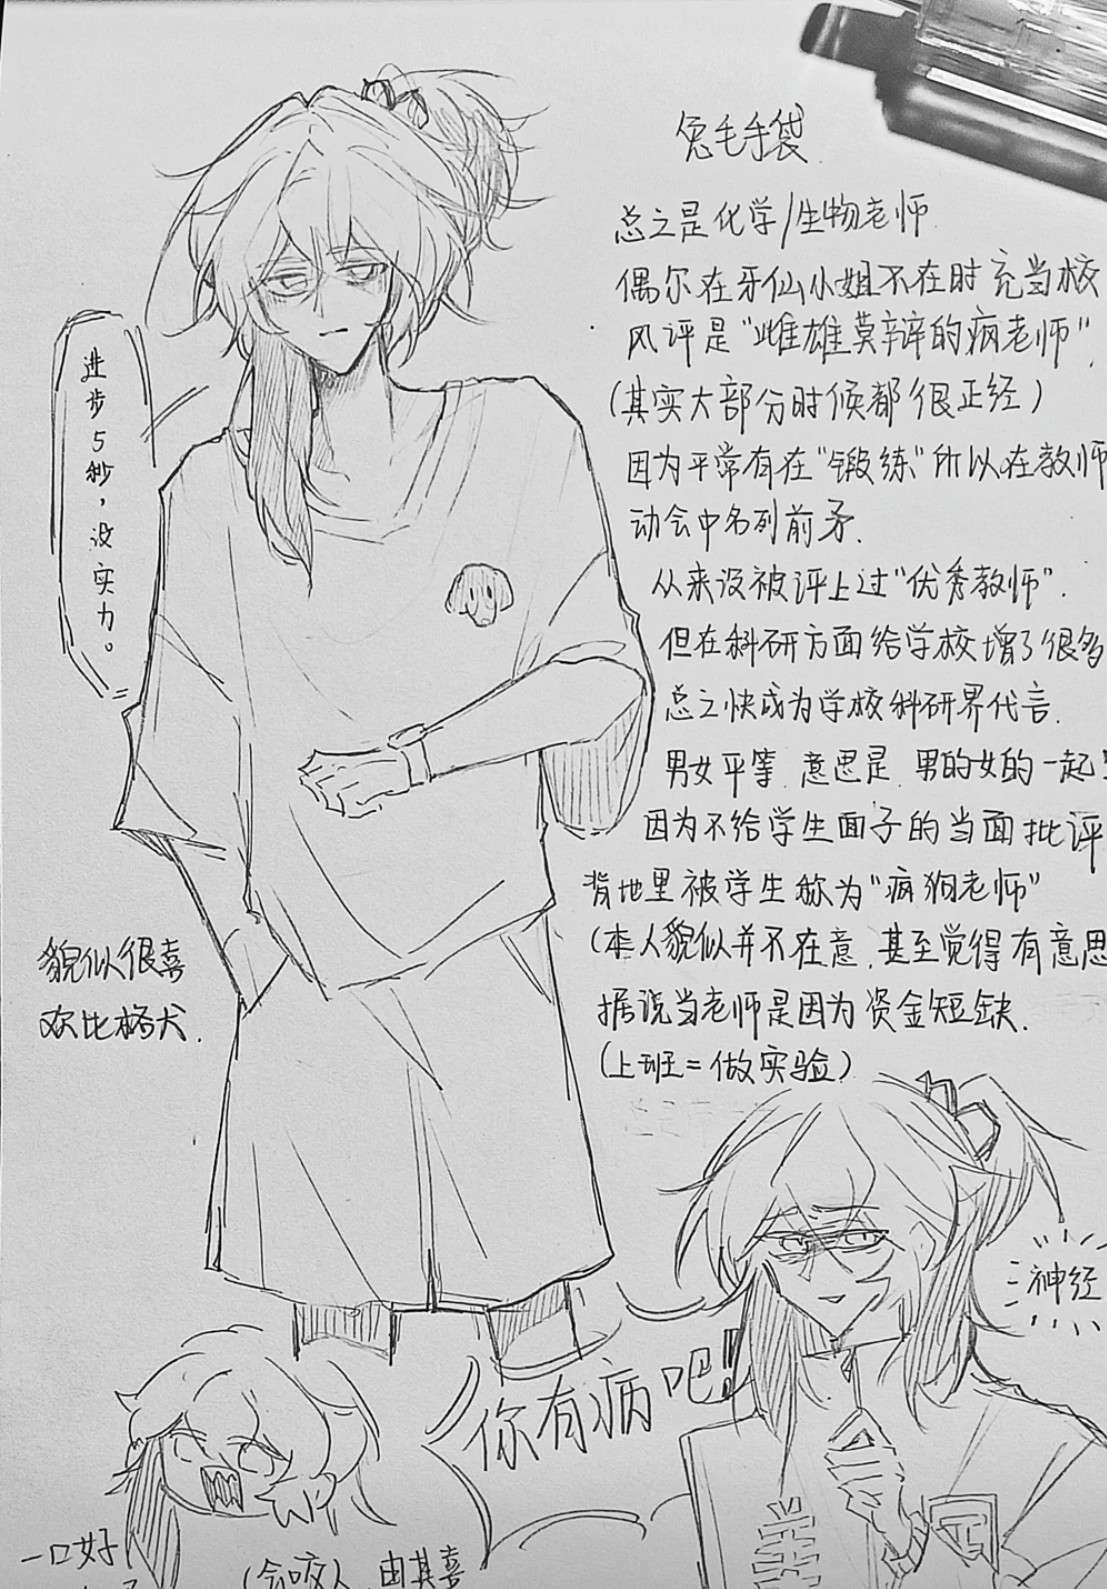 兔毛手袋
总之是化学/生物老师
偶尔在牙仙小姐不在时充当校
风评是“雌雄莫辩的疯老师”
(其实大部分时候都很正经)
因为平常有在“锻练”所以在教师
动会中名列前矛.
从来没被评上过“优秀教师”.
但在科研方面给学校增了很多
总之快成为学校科研界代言.
男女平等.意思是.男的女的一起
因为不给学生面子的当面批评
背地里被学生称为“疯狗老师”
(本人貌似并不在意.甚至觉得有意思
据说当老师是因为资金短缺.
(上班=做实验)
进步5秒，没实力。
貌似很喜
欢比格犬.
神经
你有病吧!!
一口好
(会咬人.由其喜